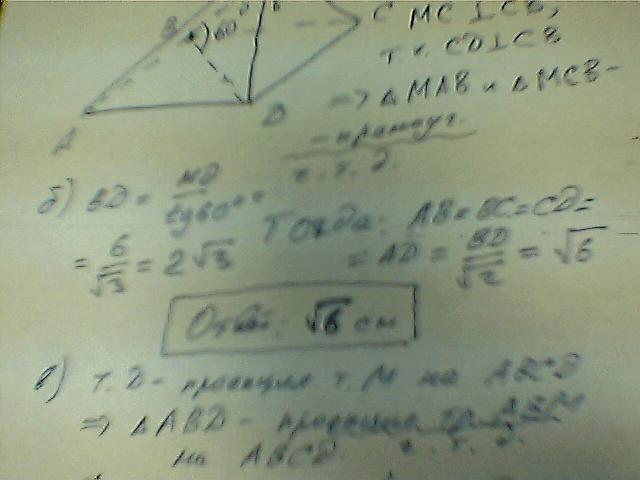 C MC ⊥ CB,
B 60° 6
т.к. CD ⊥ CB
⇒ Δ MAB и Δ MCB –
A D
– прямоуг.
ч.т.д.
б) BD = MD / tg60° =
= 6/√3 = 2√3 Тогда: AB = BC = CD =
= AD = BD/√2 = √6
Ответ: √6 см
в) т. D – проекция т. M на ABCD
⇒ Δ ABD – проекция тр. ABM
на ABCD ч.т.д.